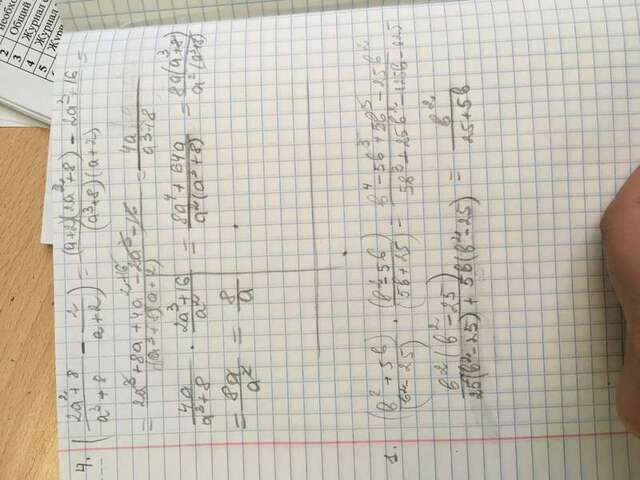 2 необхо
3 Общий
4 Журнал
5 Журнал
6 Журн
4. (2a²+8/a³+8 - 2/a+2) = (a+2)(2a²+8) - 2a³-16/(a³+8)(a+2) =
= 2a³+8a+4a²+16-2a³-16/(a³+8)(a+2) = 4a/a³+8
4a/a³+8 · 2a³+16/a² = 8a⁴+64a/a²(a³+8) = 8a(a³+8)/a²(a³+8)
= 8a/a² = 8/a
1. (b²+5b)/(b²-25) · (b²-5b)/(5b+25) = b⁴-5b³+5b³-25b²/5b³+25b²-125b-625
b²(b²-25)/25(b²-25)+5b(b²-25) = b²/25+5b